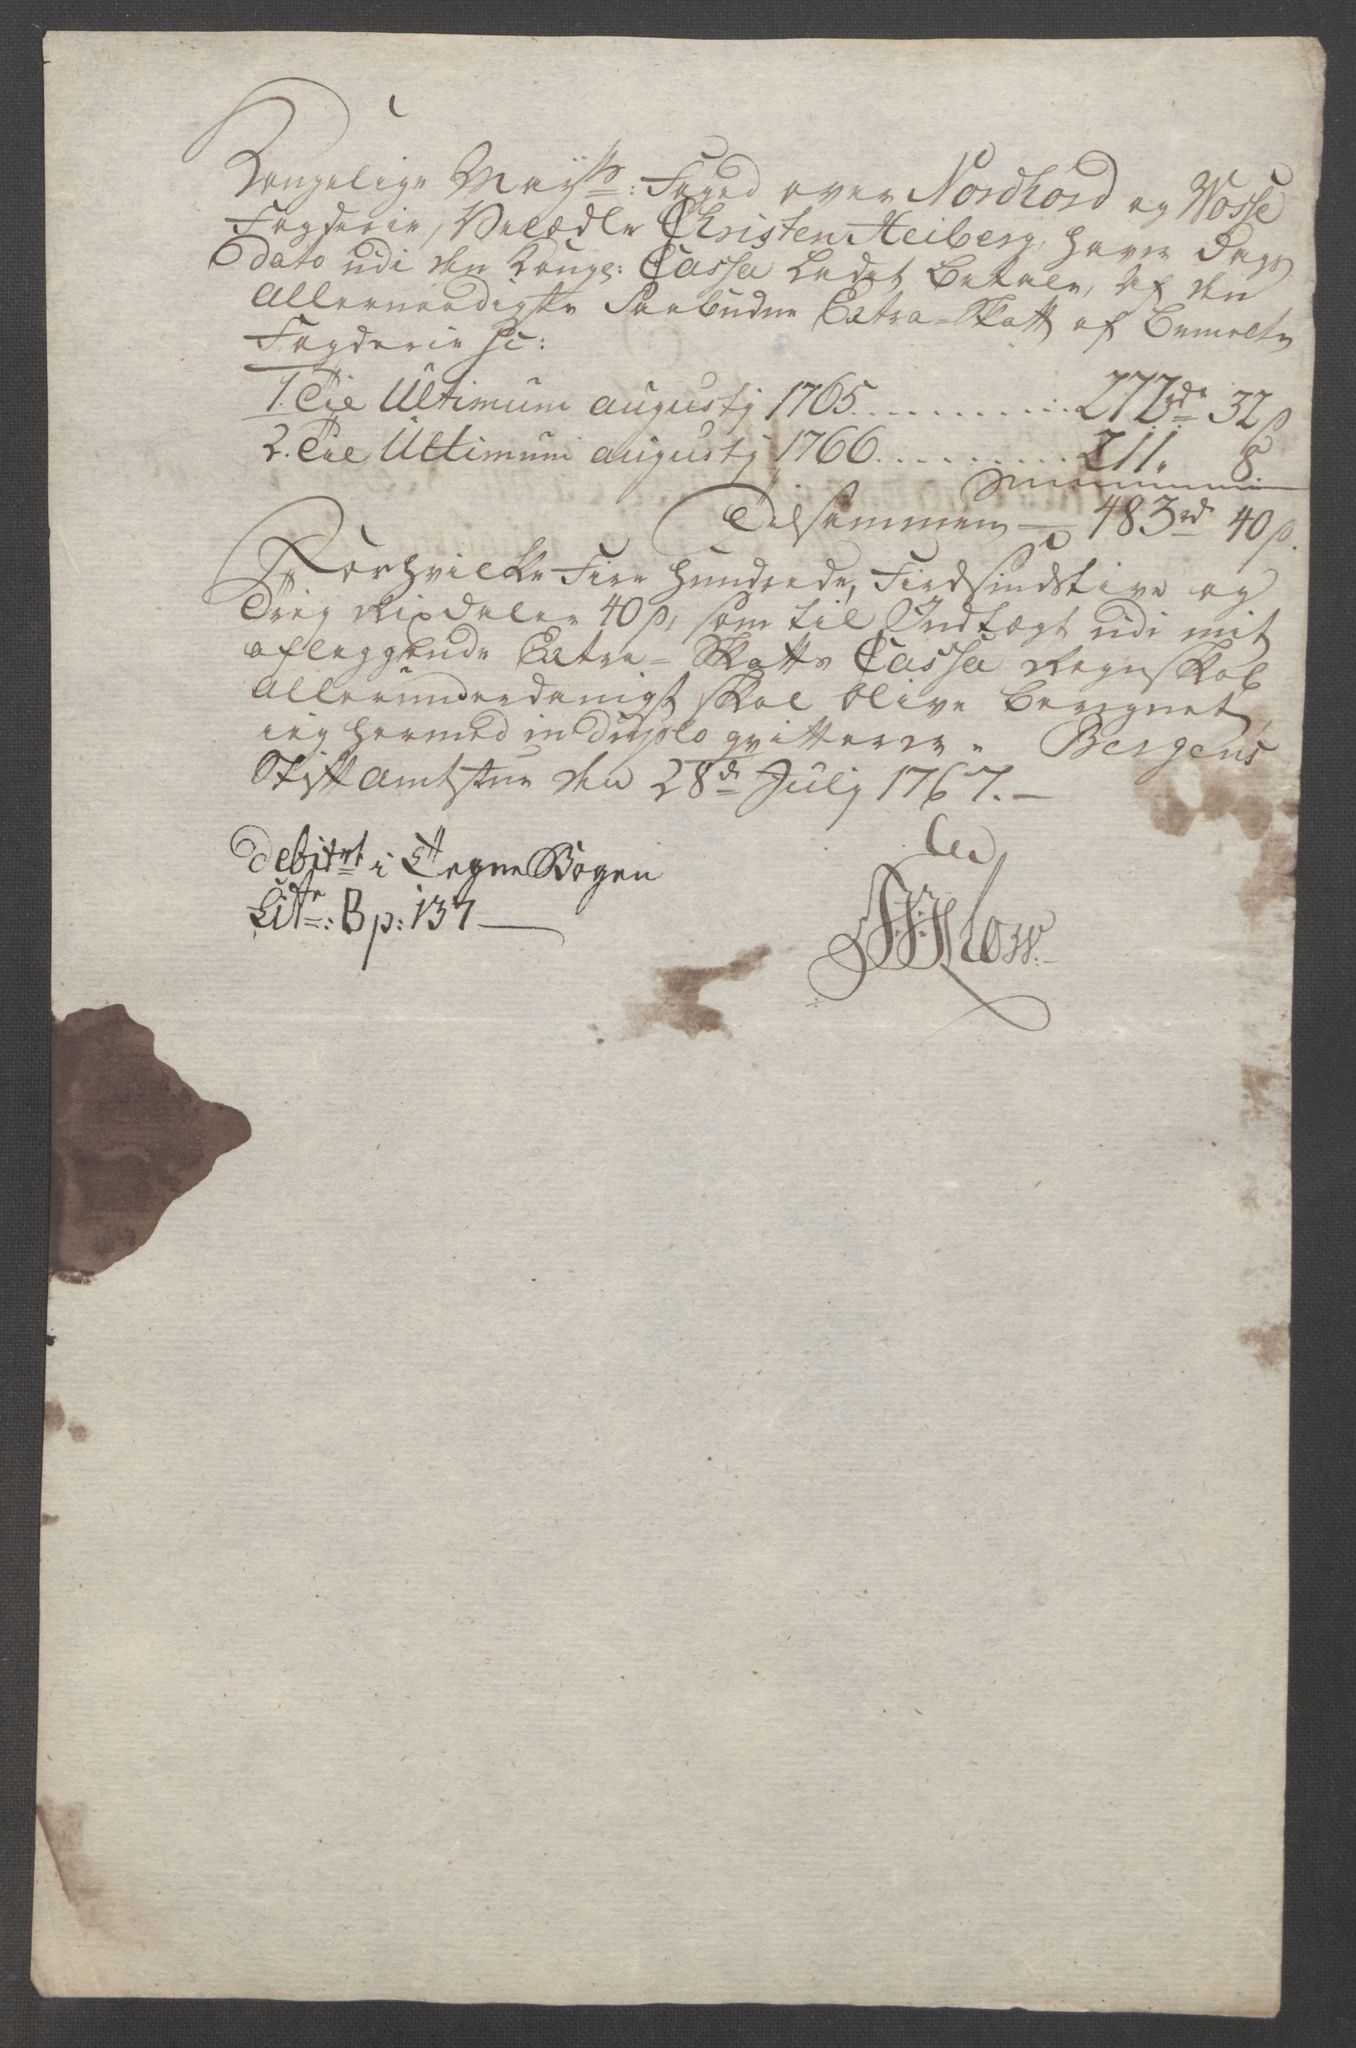 Kongelige May:ts Foged over Nordhord og Vosse
Fogderie, Velædle Christen Heiberg, haver Dags
dato udi den Konge: Cassa Ladet betale, af den
Allernaadigste Paabudne Extra-Skatt af bemelte
Fogderie sc:
1. Til Ultimum augustj 1765 . . . . . . . . . . 272rd 32 ß
2. Til Ultimum augustj 1766 . . . . . . . . . . 211. 8
Tilsammen — 483rd 40 ß.
For hvilke Fire Hundrede, Firdsindstive og
Treij Rixdaler 40 ß, som til Indtægt udi mit
aflæggende Extra-Skatts Cassa Regnskab
allerunderdanigst skal blive beregnet,
ieg hermed in duplo qvitterer. Bergens
Stiftamtstue den 28d Julij 1767. —
Debitert i Tegne Bogen
Litr: B p: 137 —